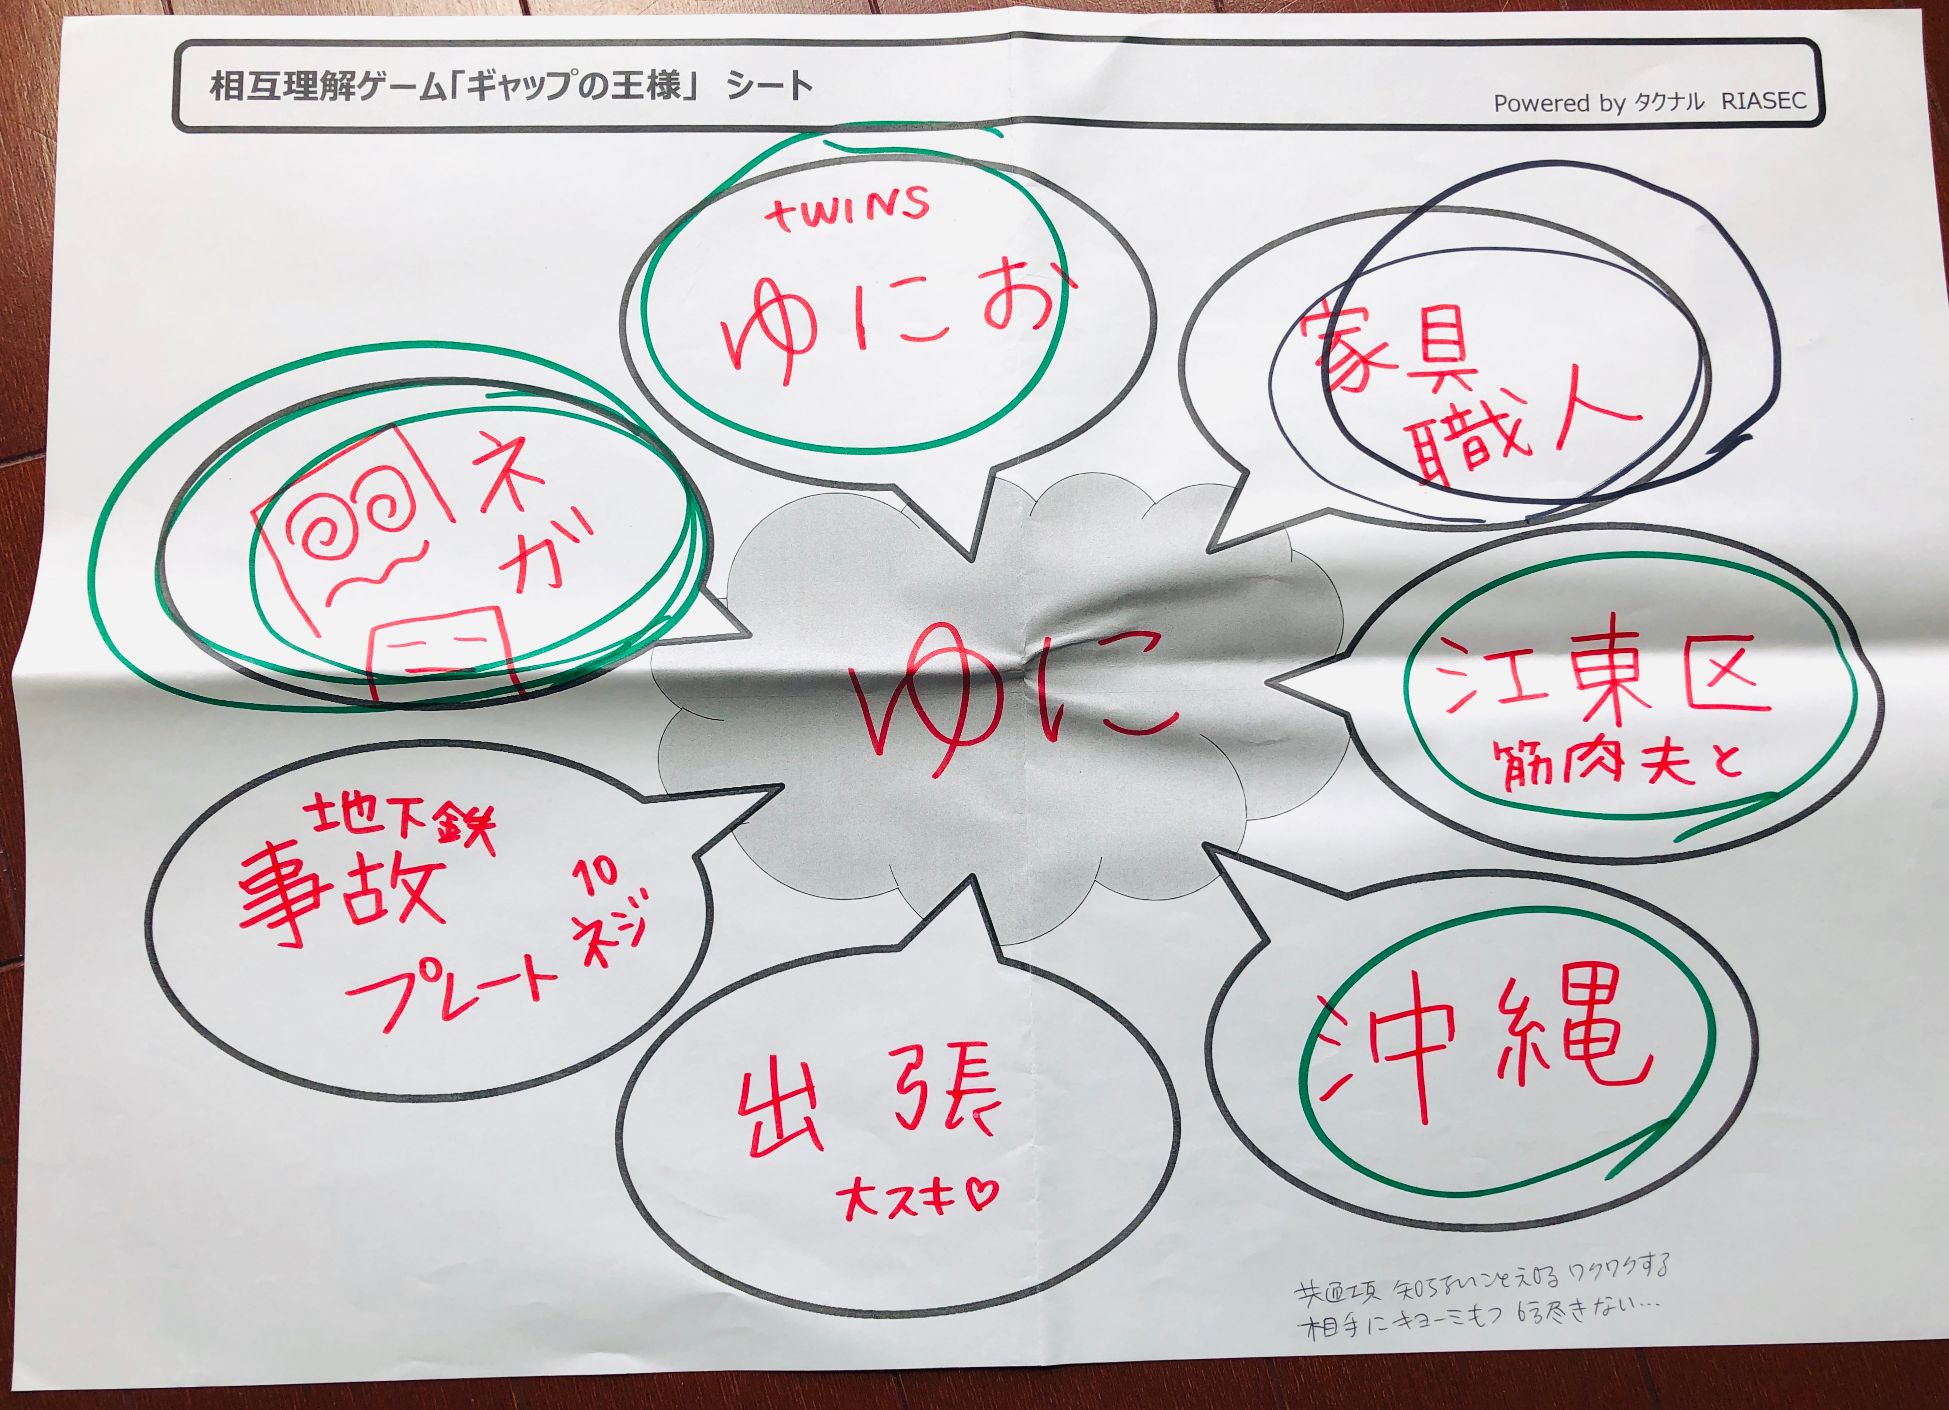 相互理解ゲーム「ギャップの王様」 シート
Powered by タクナル RIASEC
twINS
ゆにお
家具
職人
ネガ
ゆに
江東区
筋肉夫と
地下鉄
事故
プレート
10
ネジ
出張
大スキ♡
沖縄
共通項 知らないこと知る ワクワクする
相手にキョーミもつ 尽きない…